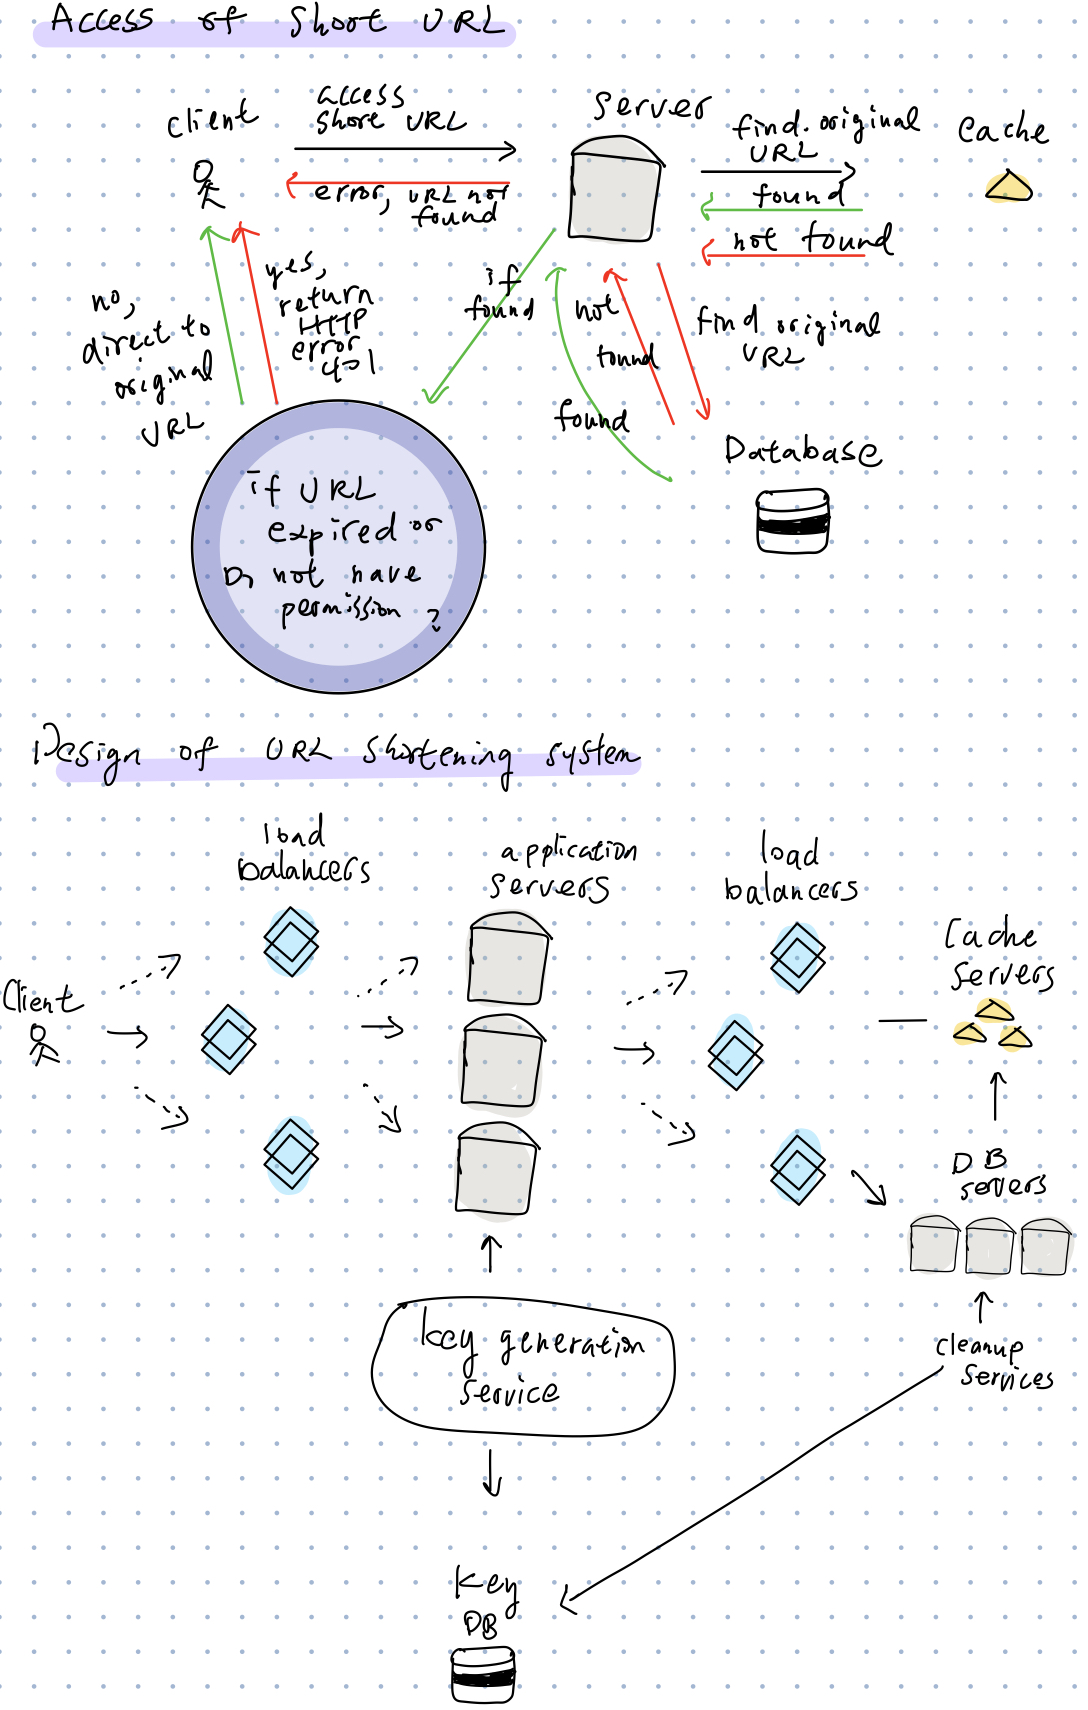 Access of Short URL
client
access
short URL
error, URL not
found
Server
find original
URL
found
not found
Cache
no,
direct to
original
URL
yes,
return
HTTP
error
401
if
found
not
found
found
find original
URL
Database
if URL
expired or
Do not have
permission ?
Design of URL shortening system
Client
load
balancers
application
servers
load
balancers
Cache
servers
DB
servers
cleanup
services
key generation
service
Key
DB